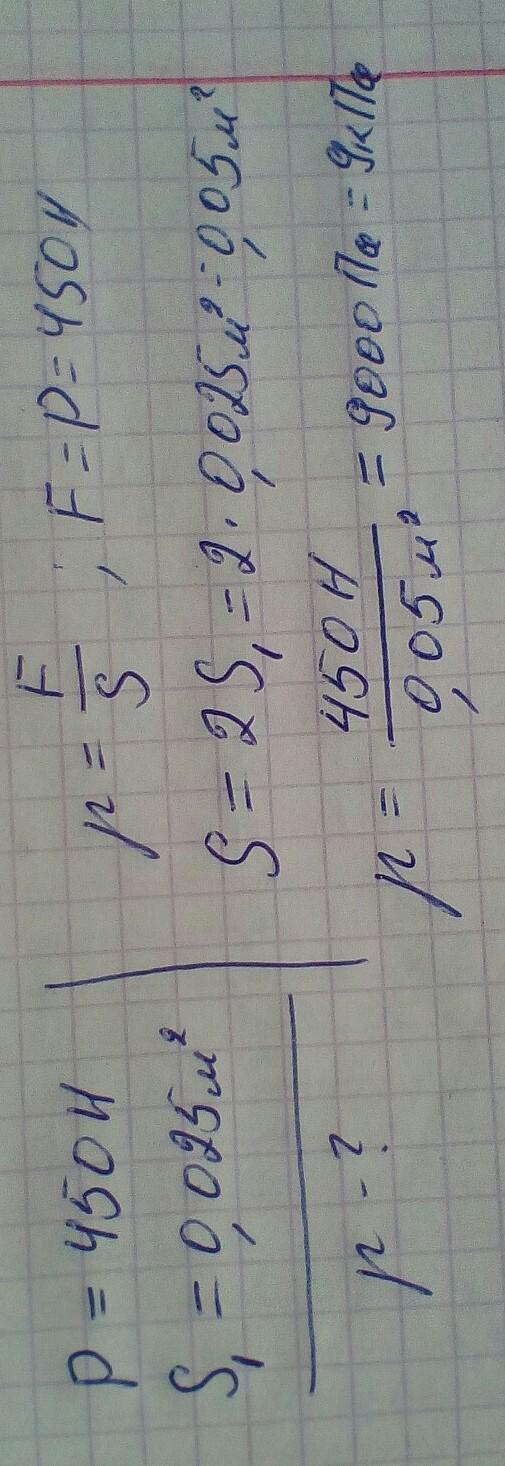 P = 450 Н
S₁ = 0,025 м²
p - ?
p = F/S , F = P = 450 Н
S = 2S₁ = 2 · 0,025 м² = 0,05 м²
p = 450 Н / 0,05 м² = 9000 Па = 9 кПа